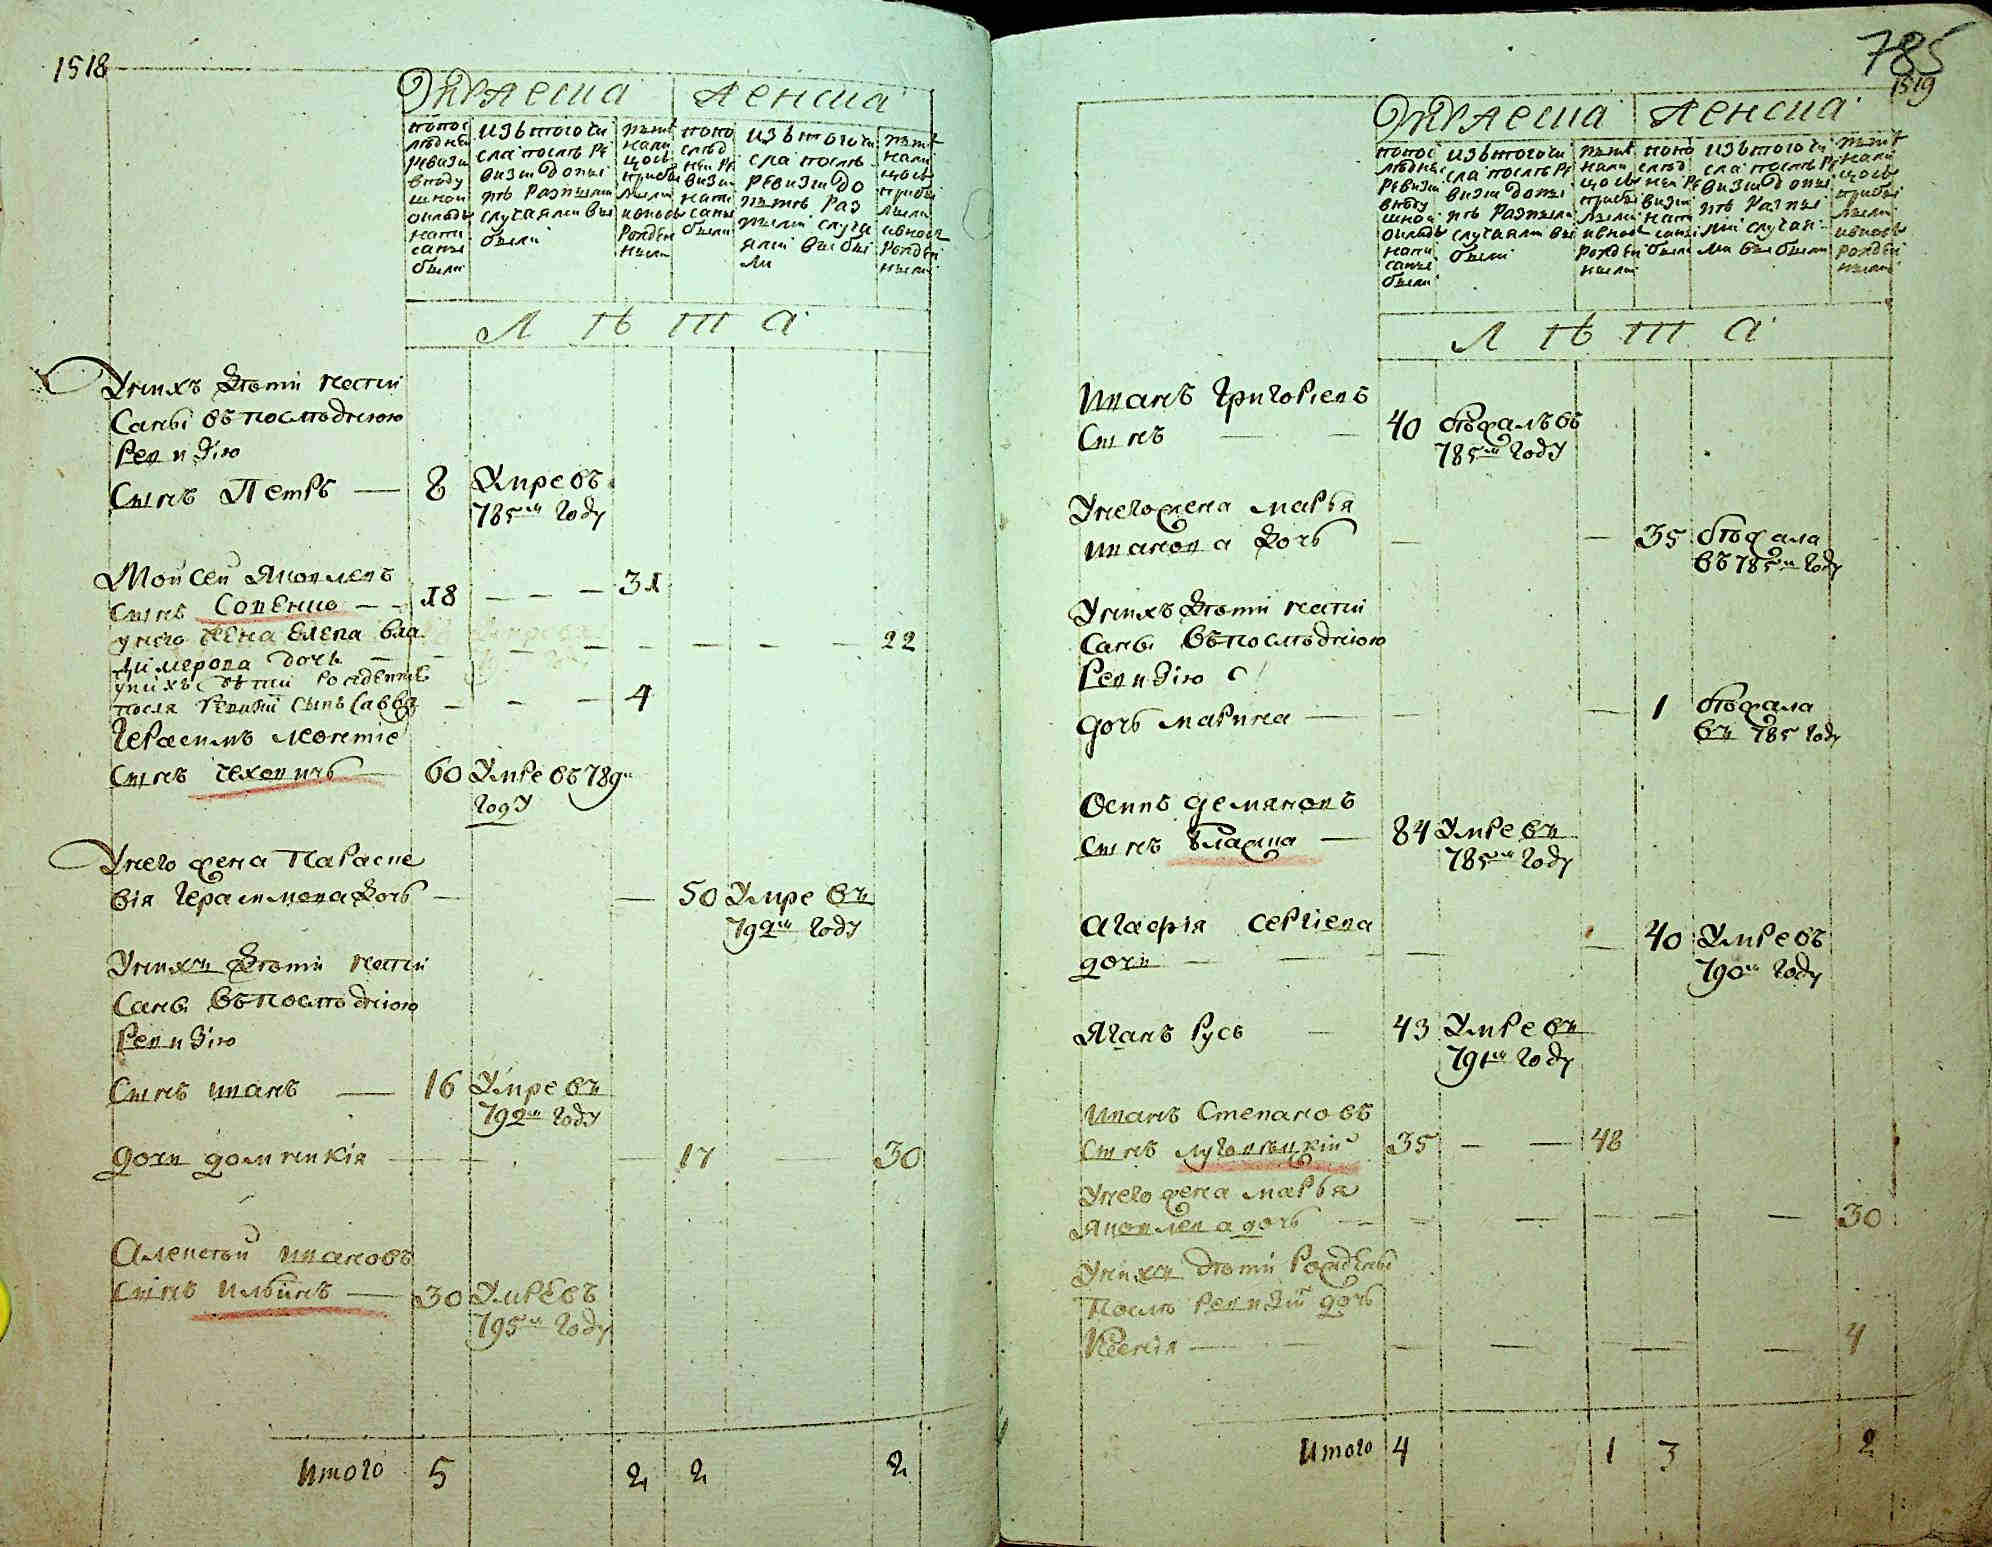 1518
Мужеска
женска
по пос
лѣдней
ревизи
в поду
шной
окладъ
напи
саны
были
изъ того чи
сла послѣ ре
визiи до ны
нѣ разными
случаями вы
были
нынѣ
нали
цо съ
прибы
лыми
и вновь
рожден
ными
по по
слѣд
ней ре
визiи
напи
саны
были
изъ того чи
сла послѣ
ревизiи до
нынѣ раз
ными случа
ями выбы
ли
нынѣ
нали
цо съ
прибы
лыми
и вновь
рожден
ными
Л ѣ т а
У нихъ дѣти напи
саны въ последнюю
ревизiю
сынъ Петръ 8 Умре въ
785м году
Мойсей Яковлевъ
сынъ Совенко 18 31
у него жена Елена Вла
димерова дочь 22
у нихъ дѣти рожденные
посля ревизiи сынъ Савва 4
Герасимъ Леонтие
сынъ Чеховичъ 60 Умре въ 789м
году
У него жена Параске
вiя Герасимова дочь 50 Умре въ
792м году
У нихъ дѣти напи
саны въ последнюю
ревизiю
сынъ Иванъ 16 Умре въ
792м году
дочь Домникiя 17 30
Алексѣй Ивановъ
сынъ Ильинъ 30 Умре въ
795м году
Итого 5 2 2 2
785
1519
Мужеска
женска
по пос
лѣдне
ревизи
в поду
шной
окладъ
напи
саны
были
изъ того чи
сла послѣ ре
визiи до ны
нѣ разными
случаями вы
были
нынѣ
нали
цо съ
прибы
лыми
и вновь
рожден
ными
по по
слѣд
ней ре
визiи
напи
саны
были
изъ того чи
сла послѣ ре
визiи до ны
нѣ разны
ми случая
ми выбыли
нынѣ
нали
цо съ
прибы
лыми
и вновь
рожден
ными
Л ѣ т а
Иванъ Григориевъ
сынъ 40 бѣжалъ въ
785м году
У него жена Марья
Иванова дочь 35 бѣжала
въ 785м году
У нихъ дѣти напи
саны въ последнюю
ревизiю
дочь Марина 1 бѣжала
въ 785 году
Осипъ Демяновъ
сынъ Блажко 84 Умре въ
785м году
Агафiя Сергiева
дочь 40 Умре въ
790м году
Яганъ Русь 43 Умре въ
791м году
Иванъ Степановъ
сынъ 35 48
У него жена Марья
Яковлева дочь 30
У нихъ дѣти рождены
послѣ ревизiи дочь
Ксенiя 4
Итого 4 1 3 2